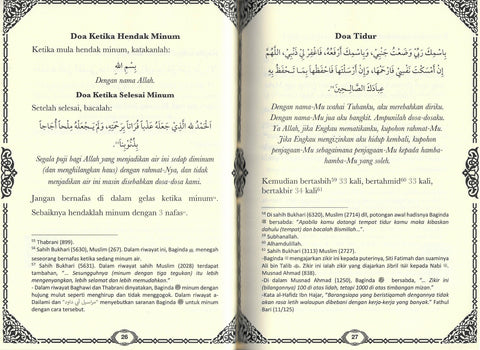 Doa Ketika Hendak Minum
Ketika mula hendak minum, katakanlah:
بِسْمِ اللهِ
Dengan nama Allah.
Doa Ketika Selesai Minum
Setelah selesai, bacalah:
اَلْحَمْدُ لله الَّذِيْ جَعَلَهُ عَذْباً فُرَاتاً بِرَحْمَتِهِ، وَلَمْ يَجْعَلْهُ مِلْحاً أُجَاجاً
بِذُنُوْبِنَا
Segala puji bagi Allah yang menjadikan air ini sedap diminum
(dan menghilangkan haus) dengan rahmat-Nya, dan tidak
menjadikan air ini masin disebabkan dosa-dosa kami.
Jangan bernafas di dalam gelas ketika minum⁵⁶.
Sebaiknya hendaklah minum dengan 3 nafas⁵⁷.
⁵⁵ Thabrani (899).
⁵⁶ Sahih Bukhari (5630), Muslim (267). Dalam riwayat ini, Baginda ﷺ menegah
seseorang bernafas ketika sedang minum air.
⁵⁷ Sahih Bukhari (5631). Dalam riwayat sahih Muslim (2028) terdapat
tambahan, "... Sesungguhnya (minum dengan tiga tegukan) itu lebih
mengenyangkan, lebih selamat dan lebih memudahkan".
- Dalam riwayat Baghawi dan Thabrani dinyatakan, Baginda ﷺ minum dengan
hujung mulut seperti menghirup dan tidak menggogok. Dalam riwayat a-
Dailami dan menyebutkan saranan Baginda ﷺ untuk minum
dengan cara tersebut.
26
Doa Tidur
بِاسْمِكَ رَبِّيْ وَضَعْتُ جَنْبِيْ، وَبِاسْمِكَ أَرْفَعُهُ، فَاغْفِرْ لِيْ ذَنْبِيْ، اللَّهُمَّ
إِنْ أَمْسَكْتَ نَفْسِيْ فَارْحَمْهَا، وَإِنْ أَرْسَلْتَهَا فَاحْفَظْهَا بِمَا تَحْفَظُ بِهِ
عِبَادَكَ الصَّالِحِيْنَ⁵⁸.
Dengan nama-Mu wahai Tuhanku, aku merebahkan diriku.
Dengan nama-Mu jua aku bangkit. Ampunilah dosa-dosaku.
Ya Allah, jika Engkau mematikanku, kupohon rahmat-Mu.
Jika Engkau mengizinkan aku hidup kembali, kupohon
penjagaan-Mu sebagaimana penjagaan-Mu kepada hamba-
hamba-Mu yang soleh.
Kemudian bertasbih⁵⁹ 33 kali, bertahmid⁶⁰ 33 kali,
bertakbir 34 kali⁶¹
⁵⁸ Di sahih Bukhari (6320), Muslim (2714) dll, potongan awal hadisnya Baginda
ﷺ bersabda: "Apabila kamu datangi tempat tidur kamu maka kibaskan
dahulu (tempat) dan bacalah Bismillah".
⁵⁹ Subhanallah.
⁶⁰ Alhamdulillah.
⁶¹ Sahih Bukhari (3113) Muslim (2727).
-Baginda ﷺ mengajarkan zikir ini kepada puterinya, Siti Fatimah dan suaminya
Ali bin Talib ra. Zikir ini ialah zikir yang diajarkan Jibril kepada Nabi ﷺ.
Musnad Ahmad (838).
-Di dalam Musnad Ahmad (1250), Baginda ﷺ bersabda, "... Zikir ini
(bilangannya) 100 di atas lidah, tetapi 1000 di atas timbangan mizan."
-Kata al-Hafidz Ibn Hajar, "Barangsiapa yang beristiqamah dengannya tidak
akan rasa letih walaupun dibebani dengan kerja-kerja yang banyak." Fathul
Bari (11/125)
27